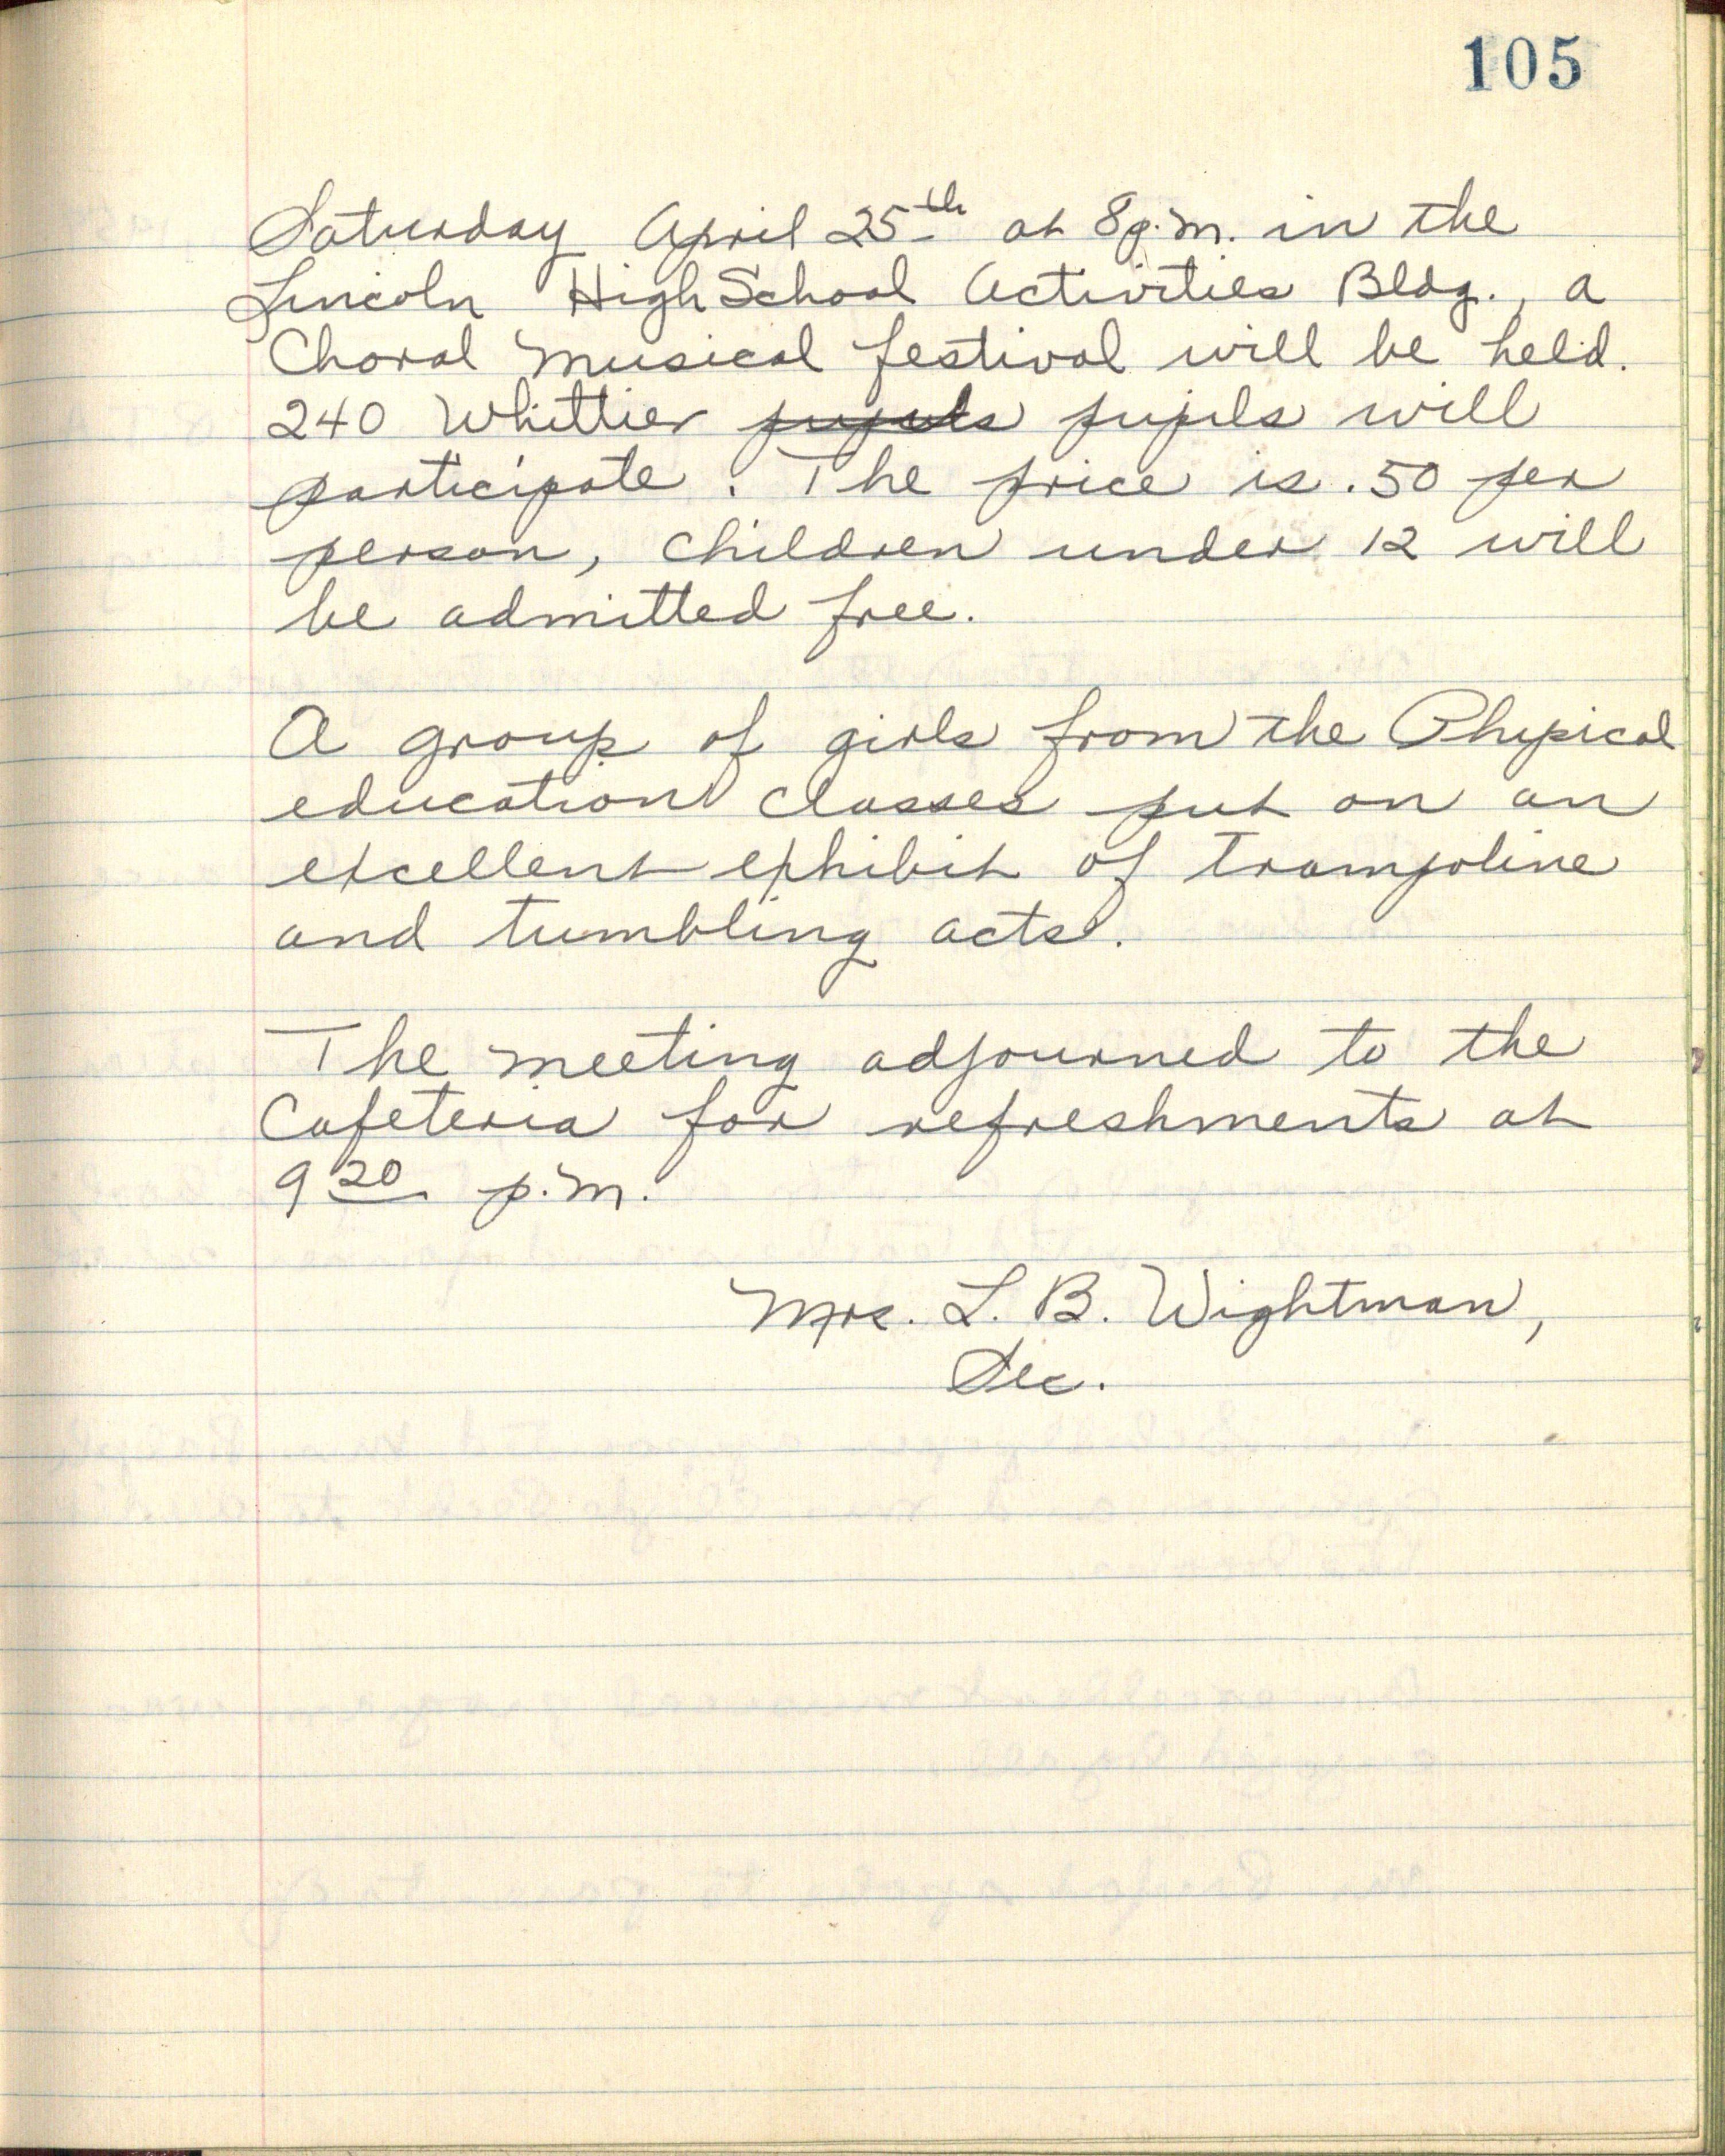 105
Saturday April 25th at 8 p.m. in the
Lincoln High School Activities Bldg., a
Choral Musical festival will be held.
240 Whittier pupils pupils will
participate. The price is .50 per
person, children under 12 will
be admitted free.
A group of girls from the Physical
education classes put on an
excellent exhibit of trampoline
and tumbling acts.
The meeting adjourned to the
Cafeteria for refreshments at
9 20 p.m.
Mrs. L. B. Wightman,
Sec.